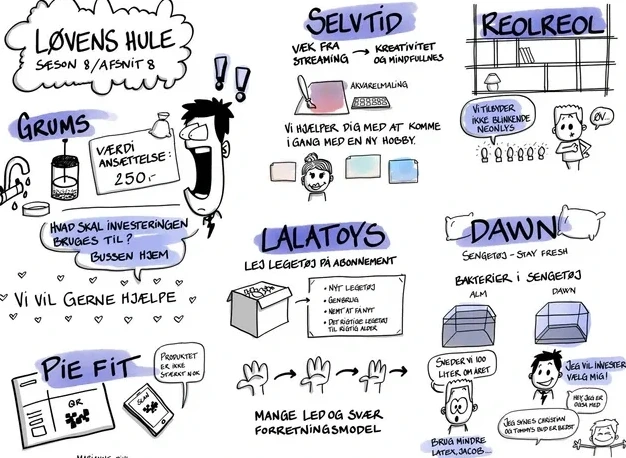 LØVENS HULE
SÆSON 8/AFSNIT 8
GRUMS
VÆRDI
ANSÆTTELSE:
250,-
HVAD SKAL INVESTERINGEN
BRUGES TIL?
BUSSEN HJEM
VI VIL GERNE HJÆLPE
PIE FIT
PRODUKTET
ER IKKE
STÆRKT NOK
QR
SCAN
SELVTID
VÆK FRA
STREAMING
KREATIVITET
OG MINDFULLNES
AKVARELMALING
VI HJÆLPER DIG MED AT KOMME
I GANG MED EN NY HOBBY.
LALATOYS
LEJ LEGETØJ PÅ ABONNEMENT
• NYT LEGETØJ
• GENBRUG
• NEMT AT FÅ NYT
• DET RIGTIGE LEGETØJ
TIL RIGTIG ALDER
MANGE LED OG SVÆR
FORRETNINGSMODEL
REOLREOL
VI TILBYDER
IKKE BLINKENDE
NEONLYS
ØV...
DAWN
SENGETØJ - STAY FRESH
BAKTERIER I SENGETØJ
ALM
DAWN
SVEDER VI 100
LITER OM ÅRET
BRUG MINDRE
LATEX, JACOB...
JEG VIL INVESTER
VÆLG MIG!
HEY, JEG ER
OGSÅ MED
JEG SYNES CHRISTIAN
OG TOMMYS BUD ER BEDST